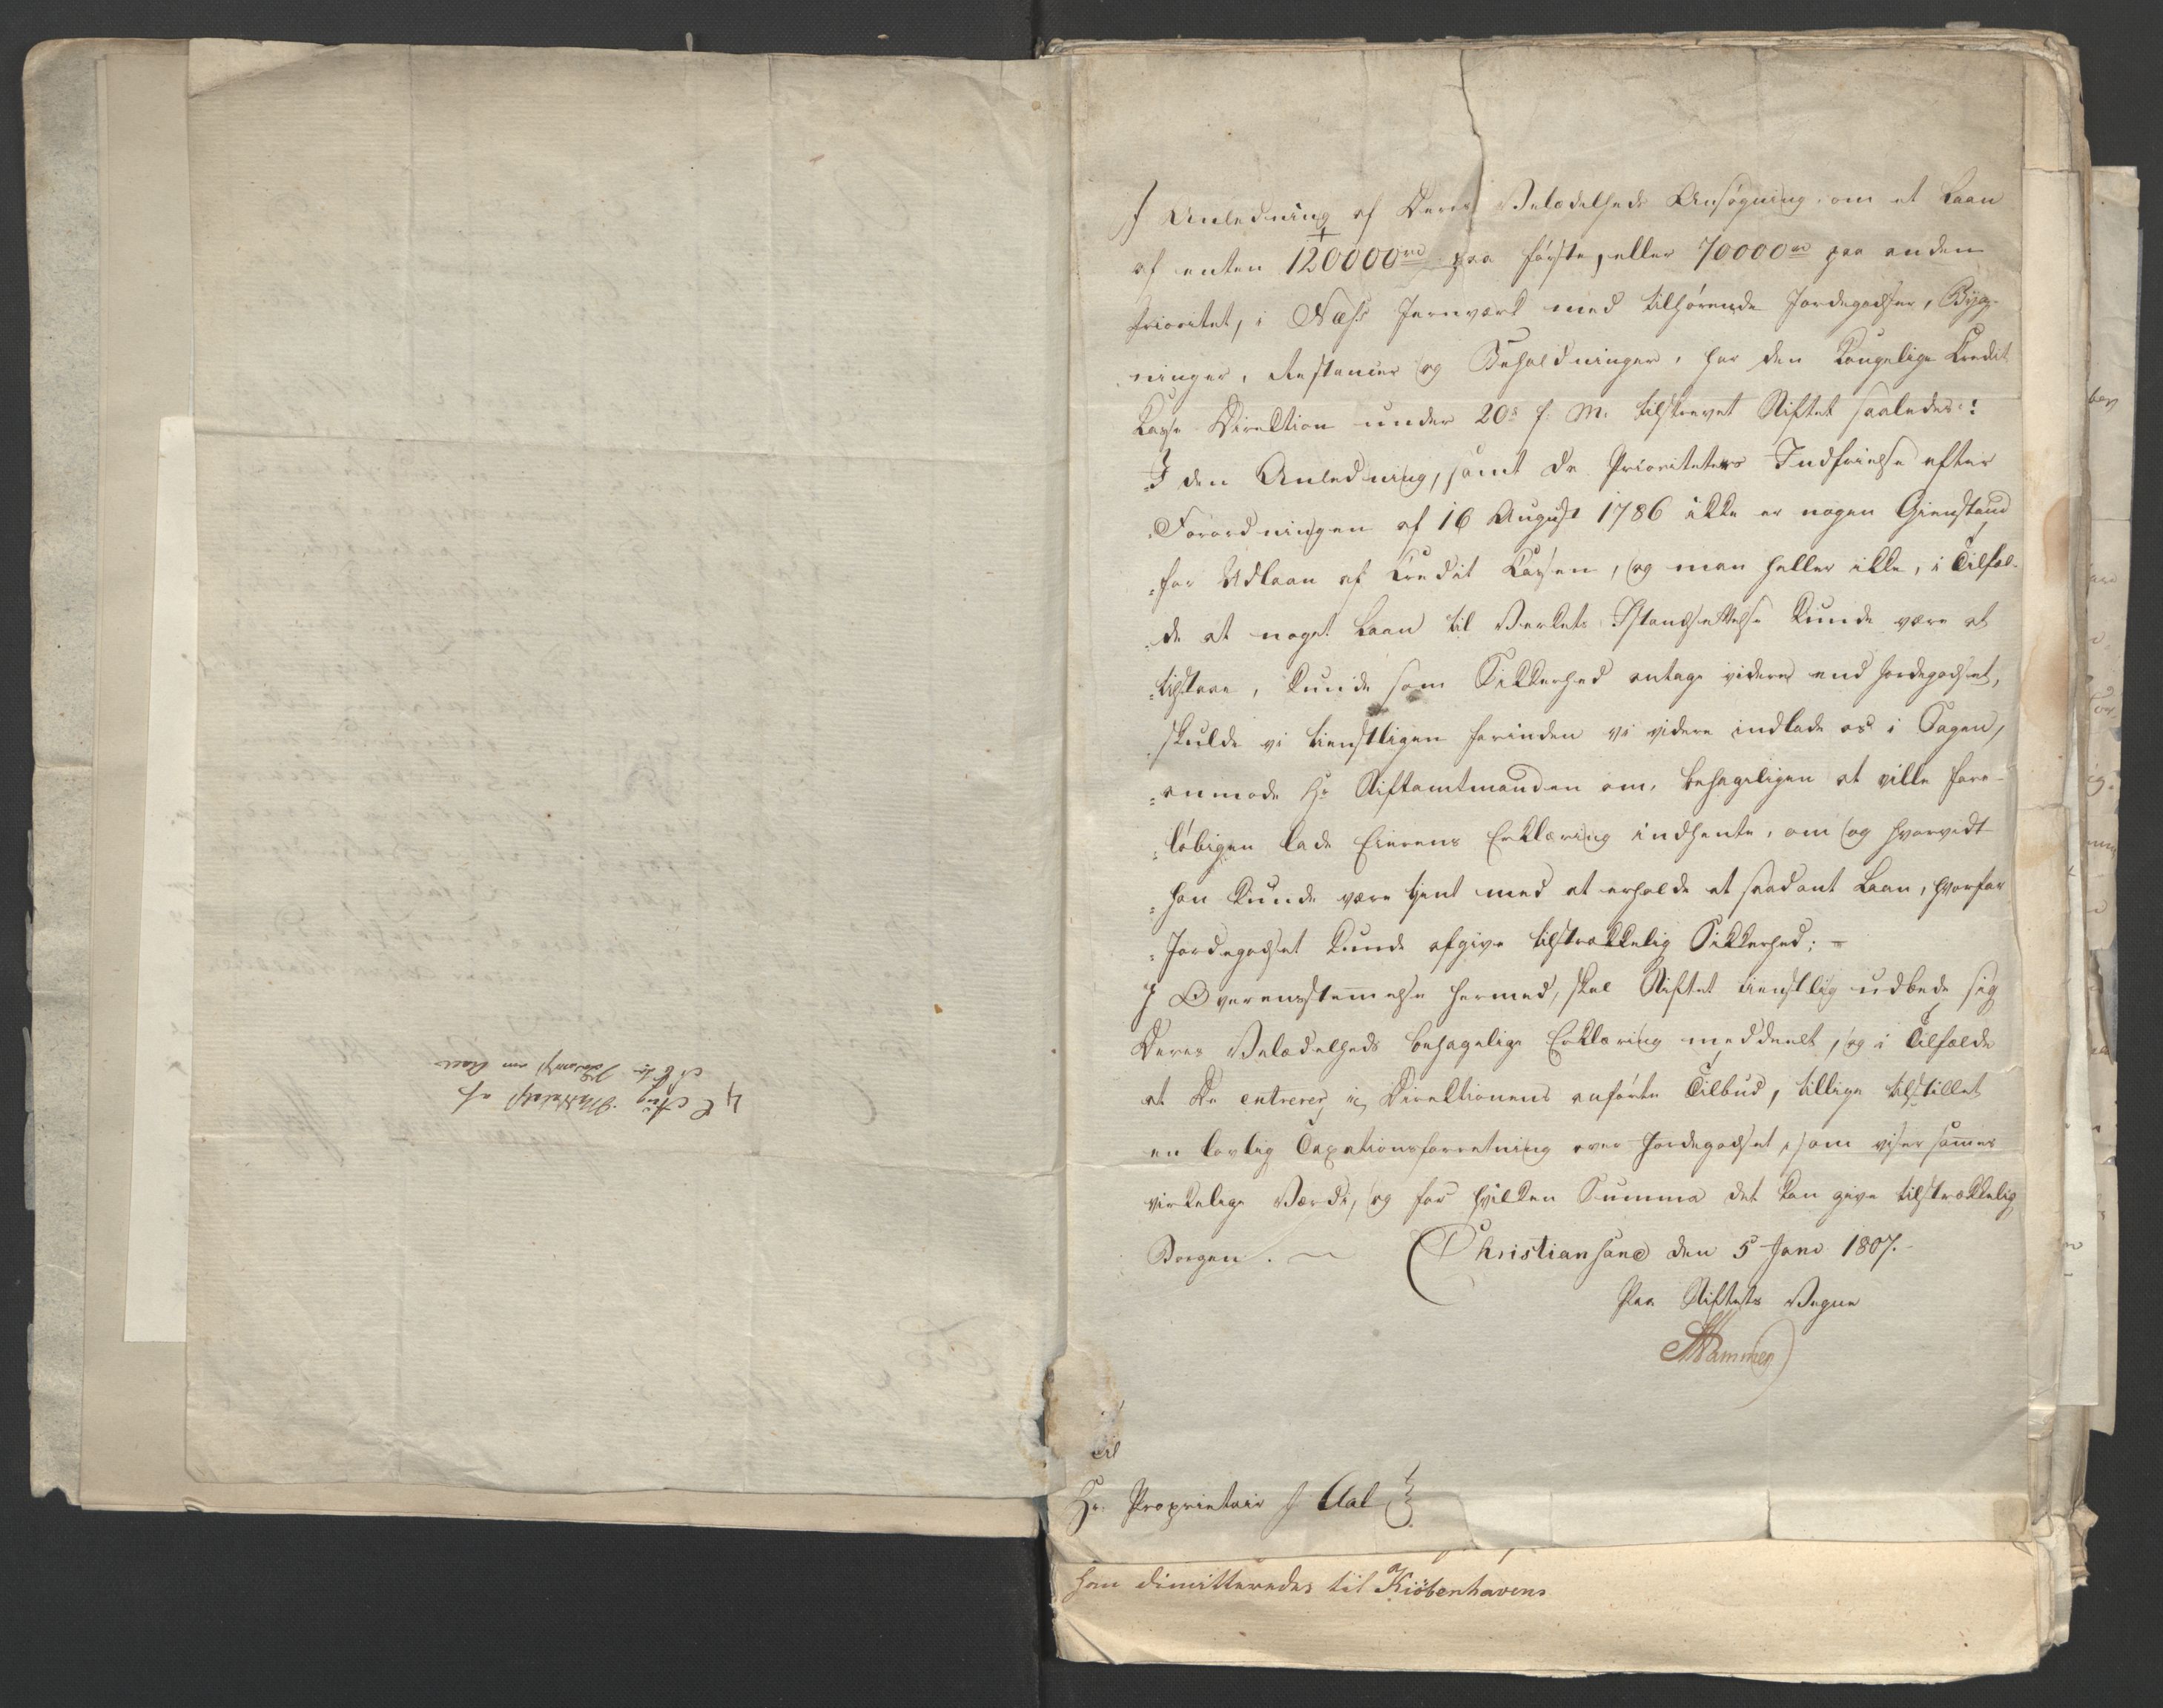 I Anledning af Deres Velædelheds Ansøgning om et Laan
af enten 120000 rd paa første, eller 70000 rd paa anden
Prioritet, i Næss Jernværk med tilhørende Jordegodser, Byg-
ninger, Restancer og Beholdninger, har den Kongelige Credit
Kasse Direktion under 20de f. M. tilskrevet Stiftet saaledes:
"I den Anledning, samt da Prioriteters Indfrielse efter
"Forordningen af 16 August 1786 ikke er nogen Gienstand
"for Udlaan af Credit Kassen, og man heller ikke, i Tilfæl-
"de at noget Laan til Verkets Istandsættelse kunde være at
"tilstaae, kunde som Sikkerhed antage videre end Jordegodset,
"skulde vi tienstligen forinden vi videre indlade os i Sagen,
"anmode Hr Stiftamtmanden om, behageligen at ville fore-
"løbigen lade Eierens Erklæring indhente, om og hvorvidt
"han kunde være tient med at erholde et saadant Laan, hvorfor
"Jordegodset kunde afgive tilstrækkelig Sikkerhed; "
I Overensstemmelse hermed, skal Stiftet tienstlig udbede sig
Deres Velædelheds behagelige Erklæring meddeelt, og i Tilfælde
at De entrerer i Direktionens anførte Tilbud, tillige tilstillet
en lovlig Taxationsforretning over Jordegodset, som viser sammes
virkelige Værdi, og for hvilken Summa det kan give tilstrækkelig
Borgen. Christiansand den 5 Janv 1807.
Paa Stiftets Vegne
Hammer
Til
Hr. Proprietair J Aal
som dimitteredes til Kiöbenhavns